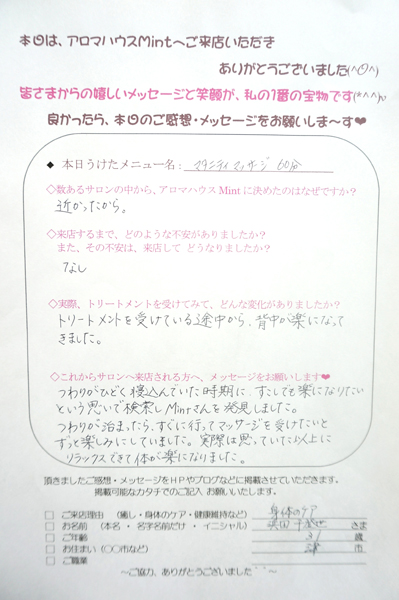 本日は、アロマハウスMintへご来店いただき
ありがとうございました(^O^)
皆さまからの嬉しいメッセージと笑顔が、私の1番の宝物です(*^^)v
良かったら、本日のご感想・メッセージをお願いしま〜す❤
◆ 本日うけたメニュー名： マタニティマッサージ 60分
◇数あるサロンの中から、アロマハウス Mint に決めたのはなぜですか？
近かったから。
◇来店するまで、どのような不安がありましたか？
また、その不安は、来店して どうなりましたか？
なし
◇実際、トリートメントを受けてみて、どんな変化がありましたか？
トリートメントを受けている途中から、背中が楽になって
きました。
◇これからサロンへ来店される方へ、メッセージをお願いします❤
つわりがひどく寝込んでいた時期に、すこしでも楽になりたい
という思いで検索しMintさんを発見しました。
つわりが治まったら、すぐに行ってマッサージを受けたいと
ずっと楽しみにしていました。実際は思っていた以上に
リラックスできて体が楽になりました。
頂きましたご感想・メッセージをHPやブログなどに掲載させていただきます。
掲載可能なカタチでのご記入 お願いいたします。
□ ご来店理由 （癒し・身体のケア・健康維持など） 身体のケア
□ お名前 （本名 ・ 名字名前だけ ・ イニシャル） さま
□ ご年齢 31 歳
□ お住まい（○○市など） 市
□ ご職業
〜ご協力、ありがとうございました